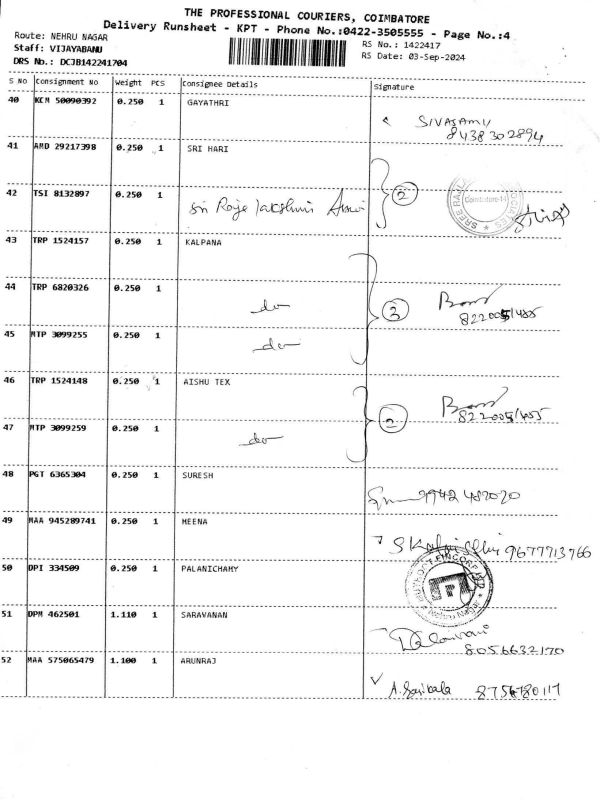 THE PROFESSIONAL COURIERS, COIMBATORE
Delivery Runsheet - KPT - Phone No.:0422-3505555 - Page No.:4
Route: NEHRU NAGAR
Staff: VIJAYABANU
DRS No.: DCJB142241704
RS No.: 1422417
RS Date: 03-Sep-2024
S No Consignment No. Weight PCS Consignee Details Signature
40 KCM 50090392 0.250 1 GAYATHRI
SIVASAMY
8438302894
41 AMD 29217398 0.250 1 SRI HARI
42 TSI 8132897 0.250 1 Sri Raje lakshmi
2
Coimbatore-14
43 TRP 1524157 0.250 1 KALPANA
44 TRP 6820326 0.250 1 do
3
45 MTP 3099255 0.250 1 do
46 TRP 1524148 0.250 1 AISHU TEX
2
47 MTP 3099259 0.250 1 do
48 PGT 6365304 0.250 1 SURESH
49 MAA 945289741 0.250 1 MEENA
9677713766
50 DPI 334509 0.250 1 PALANICHAMY
51 DPM 462501 1.110 1 SARAVANAN
8056632170
52 MAA 575065479 1.100 1 ARUNRAJ
A. Sasikala